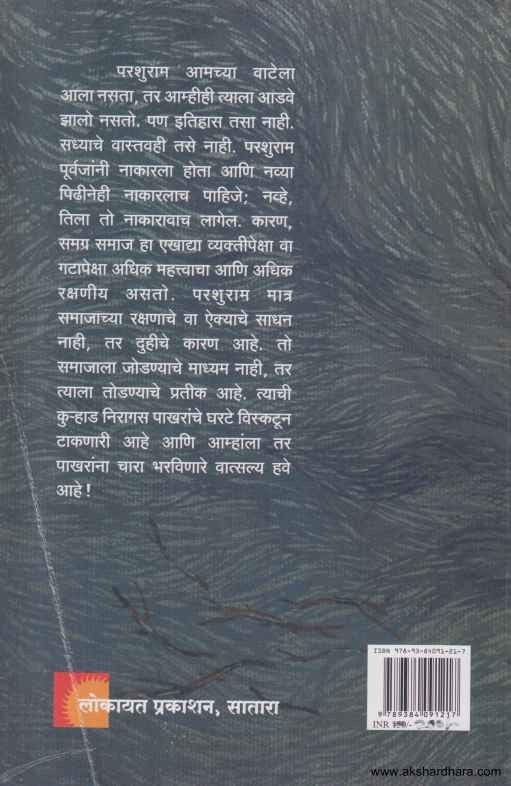 परशुराम आमच्या वाटेला
आला नसता, तर आम्हीही त्याला आडवे
झालो नसतो. पण इतिहास तसा नाही.
सध्याचे वास्तवही तसे नाही. परशुराम
पूर्वजांनी नाकारला होता आणि नव्या
पिढीनेही नाकारलाच पाहिजे; नव्हे,
तिला तो नाकारावाच लागेल. कारण,
समग्र समाज हा एखाद्या व्यक्तीपेक्षा वा
गटापेक्षा अधिक महत्त्वाचा आणि अधिक
रक्षणीय असतो. परशुराम मात्र
समाजाच्या रक्षणाचे वा ऐक्याचे साधन
नाही, तर दुहीचे कारण आहे. तो
समाजाला जोडण्याचे माध्यम नाही, तर
त्याला तोडण्याचे प्रतीक आहे. त्याची
कुऱ्हाड निरागस पाखरांचे घरटे विस्कटून
टाकणारी आहे आणि आम्हांला तर
पाखरांना चारा भरविणारे वात्सल्य हवे
आहे!
लोकायत प्रकाशन, सातारा
ISBN 978-93-84091-21-7
9 789384 091217
INR
www.akshardhara.com